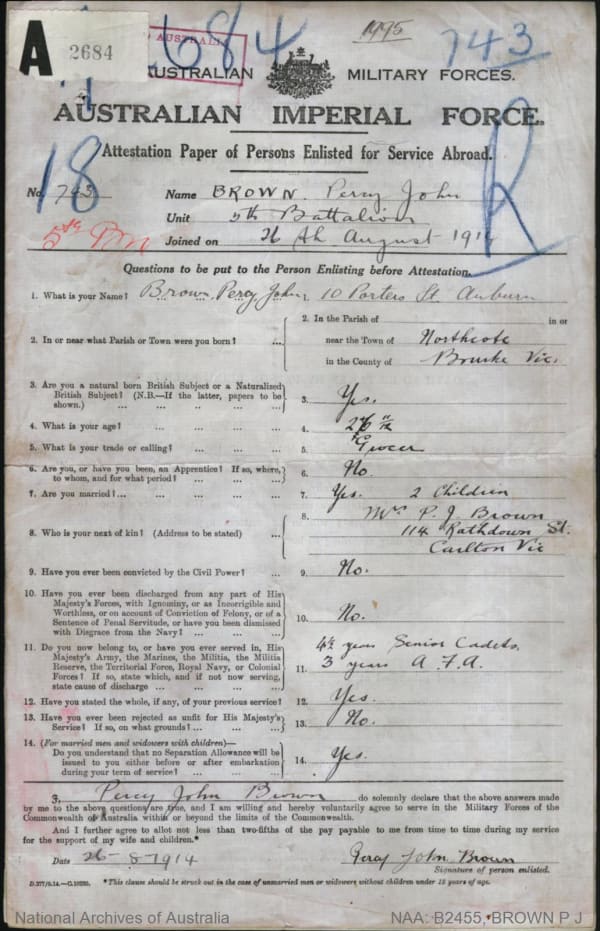 A 2684
AUSTRALI
2684
1995
743
AUSTRALIAN MILITARY FORCES.
AUSTRALIAN IMPERIAL FORCE.
Attestation Paper of Persons Enlisted for Service Abroad.
18
R
No. 743 Name BROWN Percy John
Unit 5th Battalion
5th Bn
Joined on 26th August 1914
Questions to be put to the Person Enlisting before Attestation.
1. What is your Name? Brown, Percy John, 10 Porters St. Auburn
2. In or near what Parish or Town were you born? ... ...
2. In the Parish of in or
near the Town of Northcote
in the County of Bourke Vic.
3. Are you a natural born British Subject or a Naturalized
British Subject? (N.B.—If the latter, papers to be
shown.) ... ... ... ... ...
3. Yes.
4. What is your age? ... ... ... ... 4. 26 11/12
5. What is your trade or calling? ... ... ... 5. Grocer
6. Are you, or have you been, an Apprentice? If so, where,
to whom, and for what period? ... ... ...
6. No.
7. Are you married?... ... ... ... ... 7. Yes. 2 Children
8. Who is your next of kin? (Address to be stated) ...
8. Mrs P. J. Brown
114 Rathdown St.
Carlton Vic
9. Have you ever been convicted by the Civil Power? ... 9. No.
10. Have you ever been discharged from any part of His
Majesty's Forces, with Ignominy, or as Incorrigible and
Worthless, or on account of Conviction of Felony, or of a
Sentence of Penal Servitude, or have you been dismissed
with Disgrace from the Navy? ... ... ...
10. No.
11. Do you now belong to, or have you ever served in, His
Majesty's Army, the Marines, the Militia, the Militia
Reserve, the Territorial Force, Royal Navy, or Colonial
Forces? If so, state which, and if not now serving,
state cause of discharge ... ... ... ...
11. 4½ years Senior Cadets.
3 years A. F. A.
12. Have you stated the whole, if any, of your previous service? 12. Yes.
13. Have you ever been rejected as unfit for His Majesty's
Service? If so, on what grounds? ... ... ...
13. No.
14. (For married men and widowers with children)—
Do you understand that no Separation Allowance will be
issued to you either before or after embarkation
during your term of service? ... ... ...
14. Yes.
I, Percy John Brown do solemnly declare that the above answers made
by me to the above questions are true, and I am willing and hereby voluntarily agree to serve in the Military Forces of the
Commonwealth of Australia within or beyond the limits of the Commonwealth.
And I further agree to allot not less than two-fifths of the pay payable to me from time to time during my service
for the support of my wife and children.*
Date 26-8-1914 Percy John Brown
Signature of person enlisted.
*This clause should be struck out in the case of unmarried men or widowers without children under 18 years of age.
National Archives of Australia NAA: B2455, BROWN P J